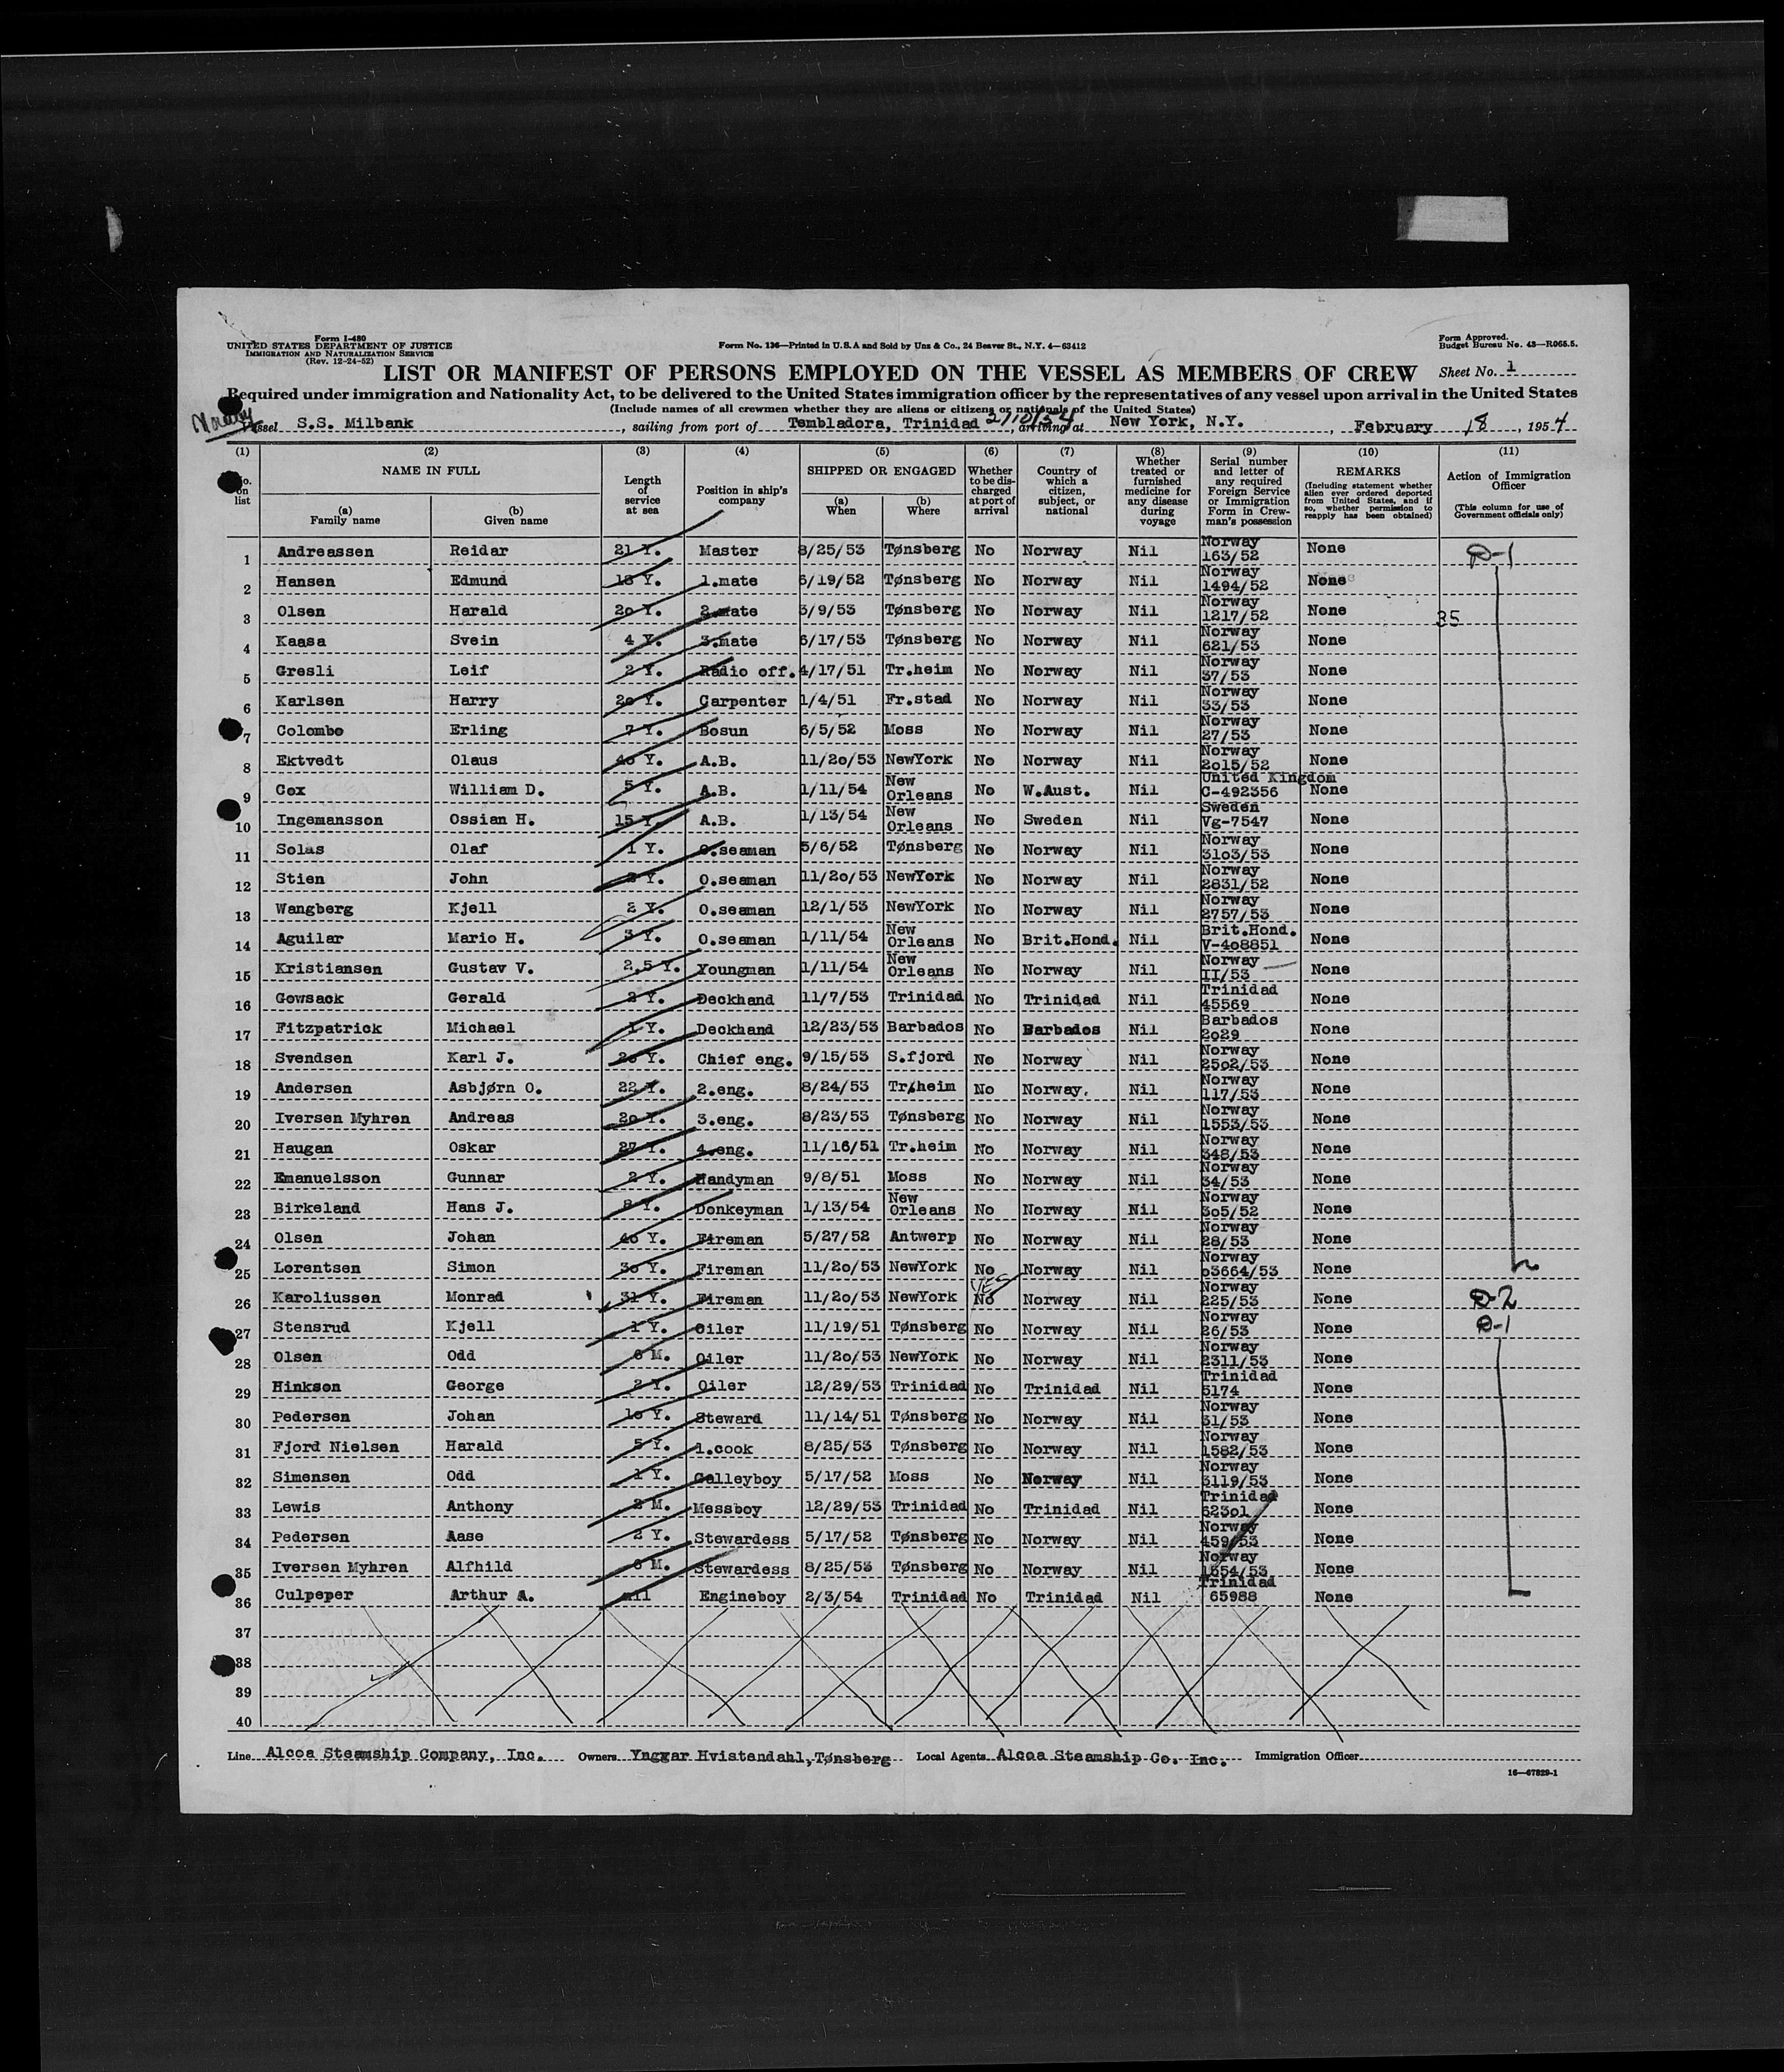 Form I-480
UNITED STATES DEPARTMENT OF JUSTICE
IMMIGRATION AND NATURALIZATION SERVICE
(Rev. 12-24-52)
Form No. 136—Printed in U.S.A and Sold by Unz & Co., 24 Beaver St., N.Y. 4—63412
Form Approved.
Budget Bureau No. 43—R065.5.
LIST OR MANIFEST OF PERSONS EMPLOYED ON THE VESSEL AS MEMBERS OF CREW
Sheet No. 1
Required under immigration and Nationality Act, to be delivered to the United States immigration officer by the representatives of any vessel upon arrival in the United States
(Include names of all crewmen whether they are aliens or citizens or nationals of the United States)
Norway
Vessel S.S. Milbank, sailing from port of Tembladora, Trinidad 2/10/54, arriving at New York, N.Y., February 18, 1954
(1) (2) (3) (4) (5) (6) (7) (8) (9) (10) (11)
No. on list
NAME IN FULL
(a) Family name
(b) Given name
Length of service at sea
Position in ship's company
SHIPPED OR ENGAGED
(a) When
(b) Where
Whether to be discharged at port of arrival
Country of which a citizen, subject, or national
Whether treated or furnished medicine for any disease during voyage
Serial number and letter of any required Foreign Service or Immigration Form in Crewman's possession
REMARKS
(Including statement whether alien ever ordered deported from United States, and if so, whether permission to reapply has been obtained)
Action of Immigration Officer
(This column for use of Government officials only)
1 Andreassen Reidar 21 Y. Master 8/25/53 Tønsberg No Norway Nil Norway 163/52 None D-1
2 Hansen Edmund 18 Y. 1.mate 6/19/52 Tønsberg No Norway Nil Norway 1494/52 None
3 Olsen Harald 2o Y. 2.mate 3/9/53 Tønsberg No Norway Nil Norway 1217/52 None 35
4 Kaasa Svein 4 Y. 3.mate 6/17/53 Tønsberg No Norway Nil Norway 621/53 None
5 Gresli Leif 2 Y. Radio off. 4/17/51 Tr.heim No Norway Nil Norway 37/53 None
6 Karlsen Harry 2o Y. Carpenter 1/4/51 Fr.stad No Norway Nil Norway 33/53 None
7 Colombo Erling 7 Y. Bosun 6/5/52 Moss No Norway Nil Norway 27/53 None
8 Ektvedt Olaus 4o Y. A.B. 11/2o/53 NewYork No Norway Nil Norway 2o15/52 None
9 Cox William D. 5 Y. A.B. 1/11/54 New Orleans No W.Aust. Nil United Kingdom C-492356 None
10 Ingemansson Ossian H. 15 Y. A.B. 1/13/54 New Orleans No Sweden Nil Sweden Vg-7547 None
11 Solas Olaf 1 Y. O.seaman 5/6/52 Tønsberg No Norway Nil Norway 31o3/53 None
12 Stien John 2 Y. O.seaman 11/2o/53 NewYork No Norway Nil Norway 2831/52 None
13 Wangberg Kjell 2 Y. O.seaman 12/1/53 NewYork No Norway Nil Norway 2757/53 None
14 Aguilar Mario H. 3 Y. O.seaman 1/11/54 New Orleans No Brit.Hond. Nil Brit.Hond. V-4o8851 None
15 Kristiansen Gustav V. 2,5 Y. Youngman 1/11/54 New Orleans No Norway Nil Norway II/53 None
16 Gowsack Gerald 2 Y. Deckhand 11/7/53 Trinidad No Trinidad Nil Trinidad 45569 None
17 Fitzpatrick Michael 1 Y. Deckhand 12/23/53 Barbados No Barbados Nil Barbados 2o29 None
18 Svendsen Karl J. 2o Y. Chief eng. 9/15/53 S.fjord No Norway Nil Norway 25o2/53 None
19 Andersen Asbjørn O. 22 Y. 2.eng. 8/24/53 Tr.heim No Norway. Nil Norway 117/53 None
20 Iversen Myhren Andreas 2o Y. 3.eng. 8/23/53 Tønsberg No Norway Nil Norway 1553/53 None
21 Haugan Oskar 27 Y. 4.eng. 11/16/51 Tr.heim No Norway Nil Norway 348/53 None
22 Emanuelsson Gunnar 2 Y. Handyman 9/8/51 Moss No Norway Nil Norway 34/53 None
23 Birkeland Hans J. 8 Y. Donkeyman 1/13/54 New Orleans No Norway Nil Norway 3o5/52 None
24 Olsen Johan 4o Y. Fireman 5/27/52 Antwerp No Norway Nil Norway 28/53 None
25 Lorentsen Simon 3o Y. Fireman 11/2o/53 NewYork No Norway Nil Norway o3664/53 None
26 Karoliussen Monrad 31 Y. Fireman 11/2o/53 NewYork No YES Norway Nil Norway 225/53 None D-2
27 Stensrud Kjell 1 Y. Oiler 11/19/51 Tønsberg No Norway Nil Norway 26/53 None D-1
28 Olsen Odd 6 M. Oiler 11/2o/53 NewYork No Norway Nil Norway 2311/53 None
29 Hinkson George 2 Y. Oiler 12/29/53 Trinidad No Trinidad Nil Trinidad 5174 None
30 Pedersen Johan 1o Y. Steward 11/14/51 Tønsberg No Norway Nil Norway 31/53 None
31 Fjord Nielsen Harald 5 Y. 1.cook 8/25/53 Tønsberg No Norway Nil Norway 1582/53 None
32 Simensen Odd 1 Y. Galleyboy 5/17/52 Moss No Norway Nil Norway 3119/53 None
33 Lewis Anthony 2 M. Messboy 12/29/53 Trinidad No Trinidad Nil Trinidad 623o1 None
34 Pedersen Aase 2 Y. Stewardess 5/17/52 Tønsberg No Norway Nil Norway 459/53 None
35 Iversen Myhren Alfhild 6 M. Stewardess 8/25/53 Tønsberg No Norway Nil Norway 1554/53 None
36 Culpeper Arthur A. nil Engineboy 2/3/54 Trinidad No Trinidad Nil Trinidad 65988 None
37
38
39
40
Line Alcoa Steamship Company, Inc. Owners Yngvar Hvistendahl, Tønsberg Local Agents Alcoa Steamship Co. Inc. Immigration Officer
16—67829-1